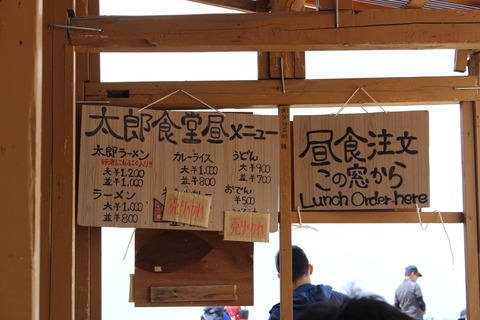 太郎食堂昼メニュー
太郎ラーメン
大￥1,200
並￥1,000
ラーメン
大￥1,000
並￥800
カレーライス
大￥1,000
並￥800
カレー
売り切れ
うどん
大￥900
並￥700
おでん
￥500
売り切れ
昼食注文
この窓から
Lunch Order here